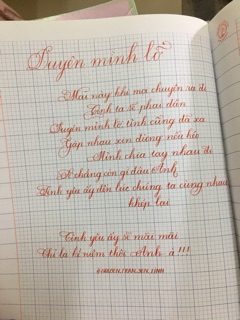 Duyên mình lỡ
Mai này khi ma chuyển ra đi
Tình ta sẽ phai dần
Duyên mình lỡ tình cũng đã xa
Gặp nhau xin đừng nói
Mình chia tay nhau đi
Ả chẳng còn gì đâu Anh
Tình yêu ấy đến lúc chúng ta cùng nhau
khép lại
Tình yêu ấy sẽ mãi mãi
Chỉ là kỉ niệm thôi Anh à !!!